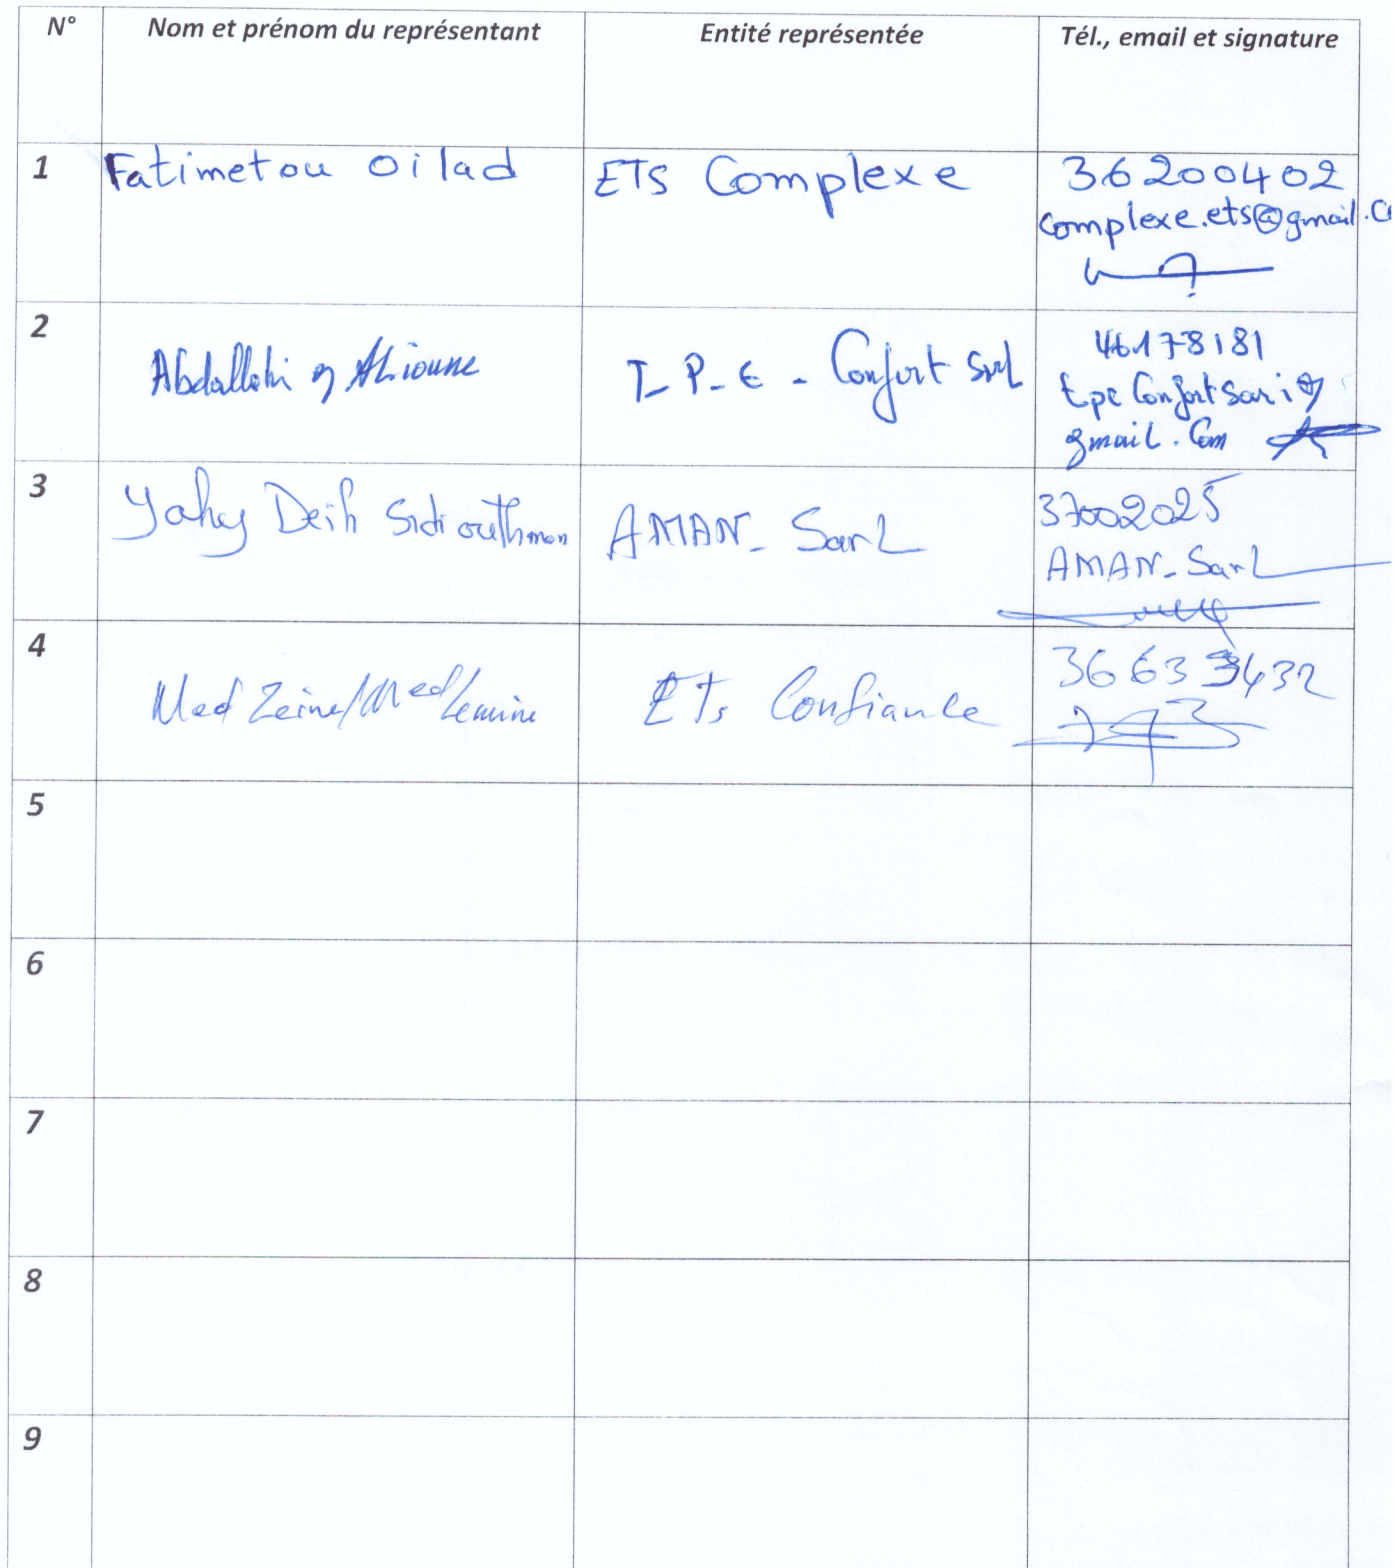 N° Nom et prénom du représentant Entité représentée Tél., email et signature
1 Fatimetou Oilad ETS Complexe 36200402
complexe.ets@gmail.co
2 Abdallahi Alioune T_P_E - Confort Sarl 46178181
tpe Confort Sarl @
gmail.Com
3 Yahy Deih Sidi outhman AMAN_ Sarl 37002025
AMAN_ Sarl
4 Med Zeine/Med Lemine ETs Confiance 36633432
5
6
7
8
9